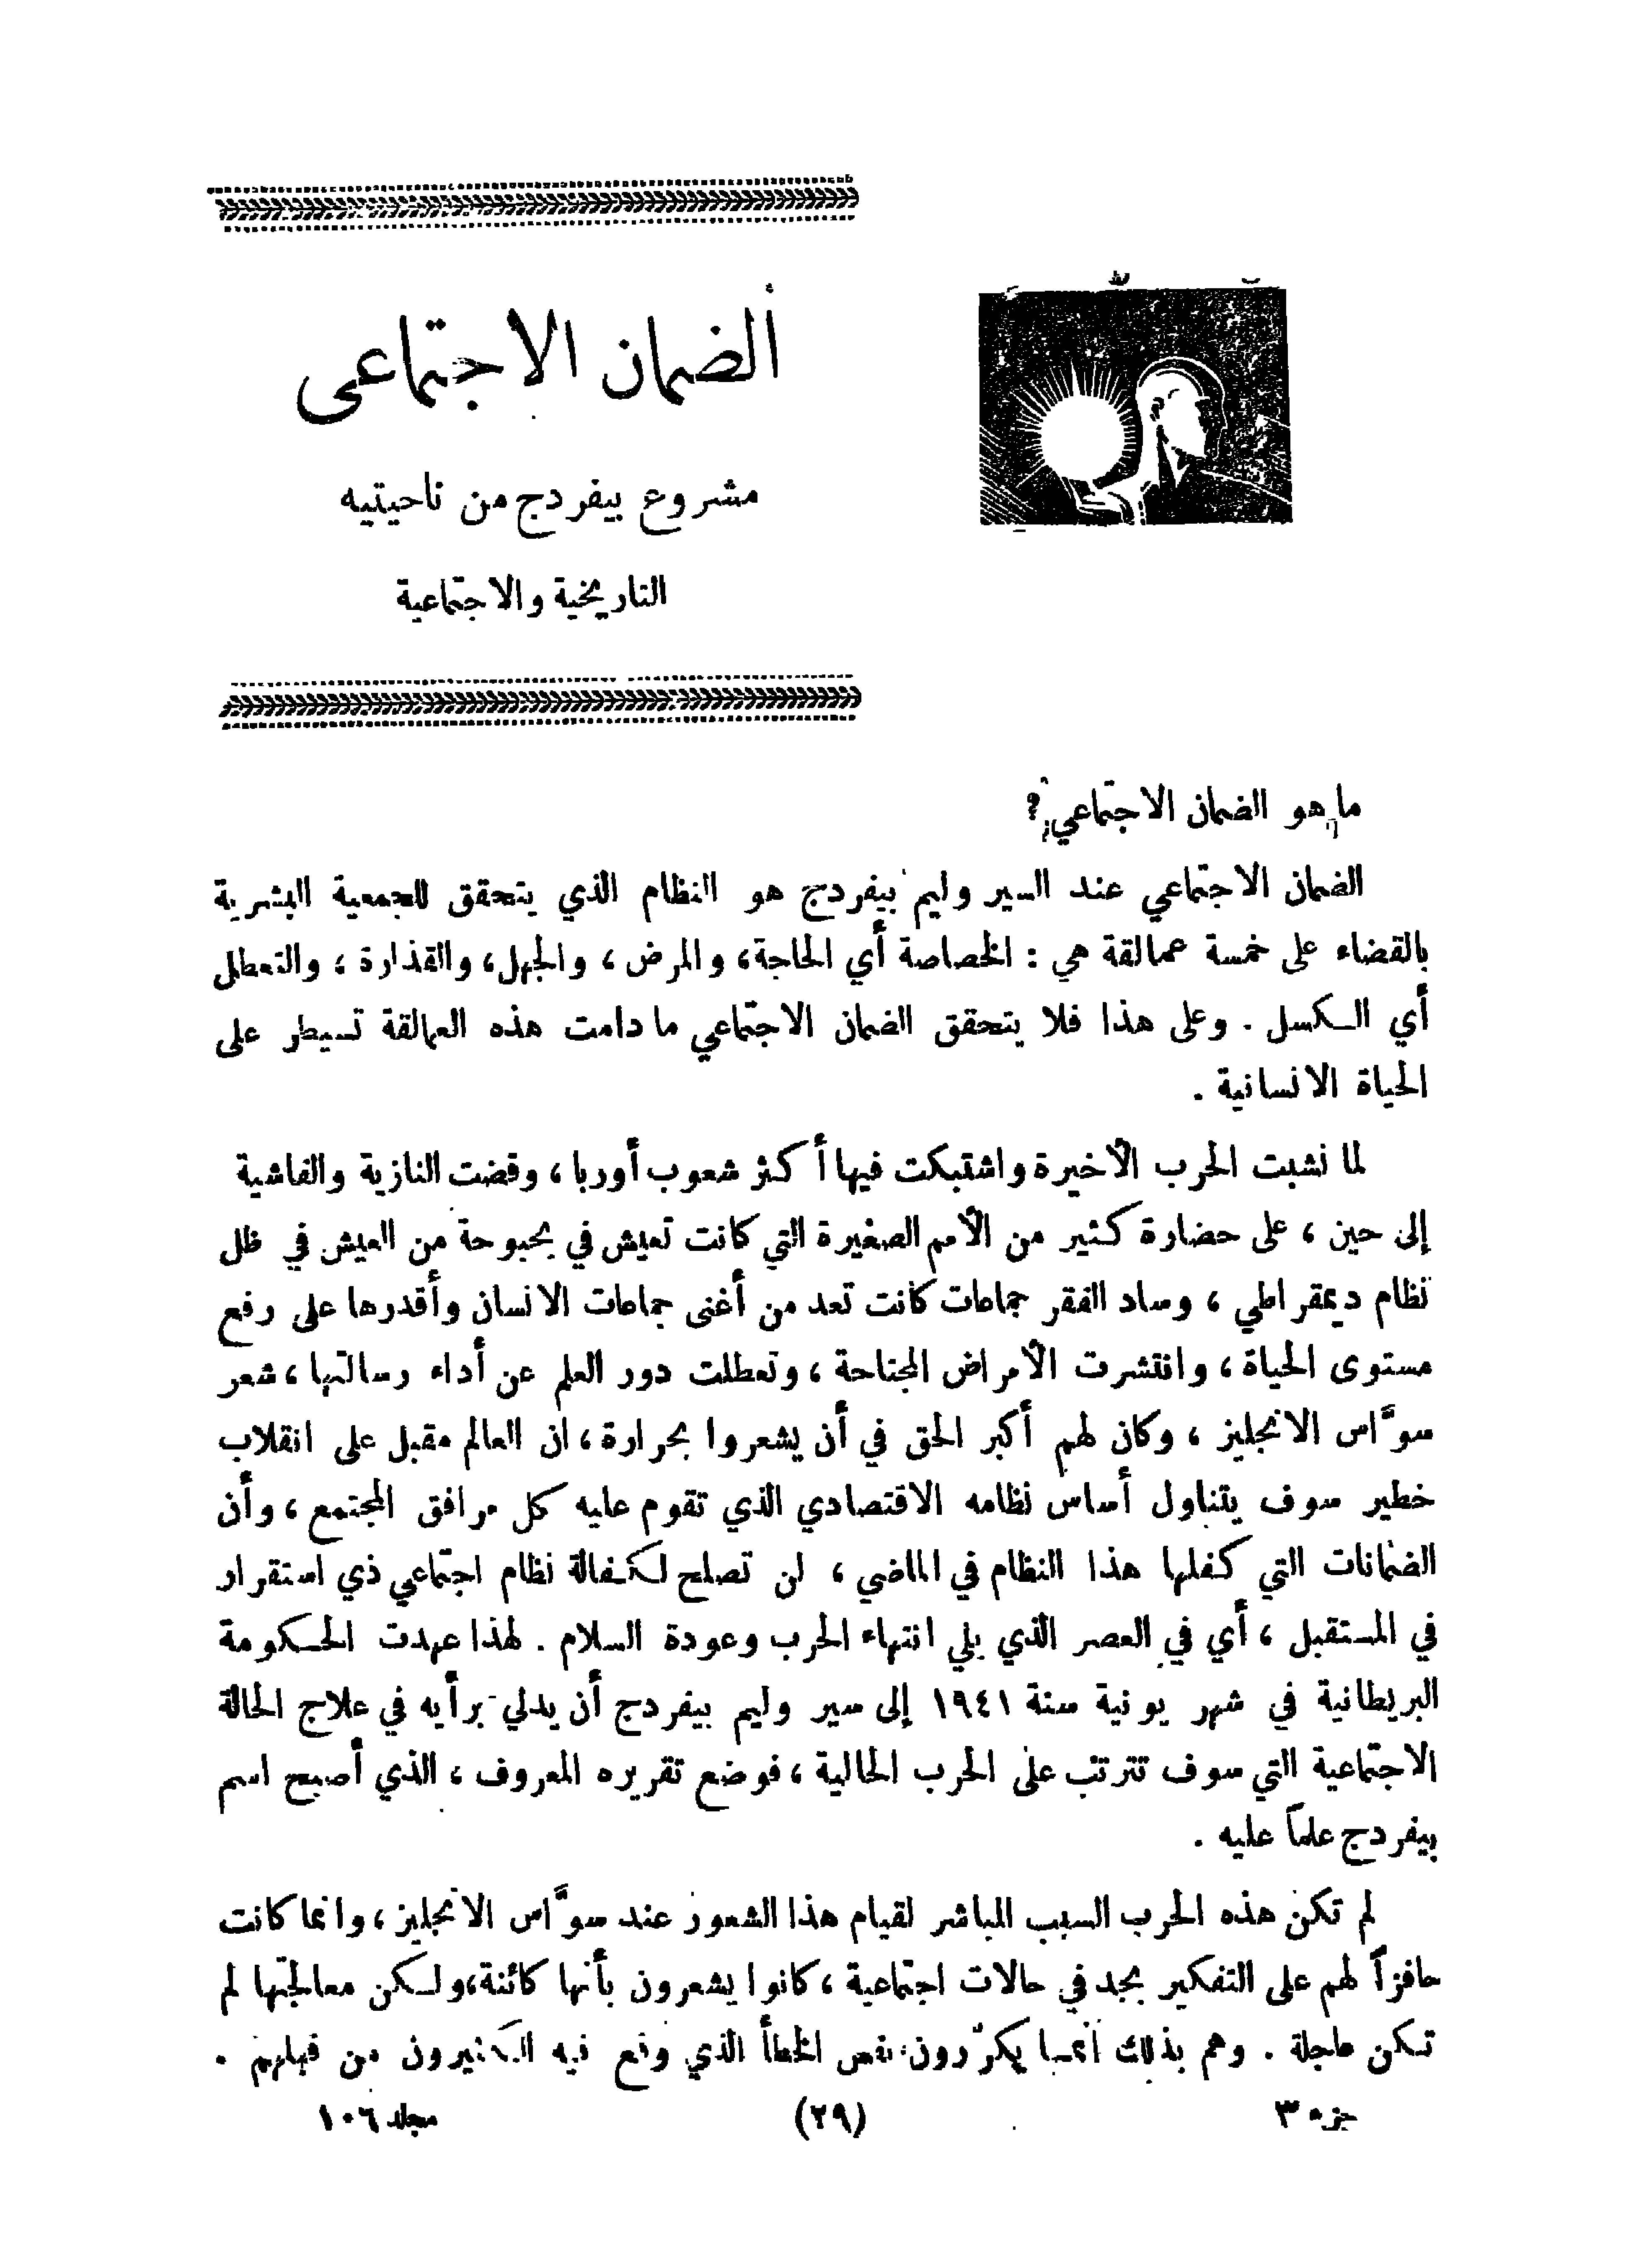 الضمان الاجتماعى
مشروع بيفردج من ناحيتيه
التاريخية والاجتماعية
ما هو الضمان الاجتماعي ؟
الضمان الاجتماعي عند السير وليم بيفردج هو النظام الذي يتحقق للجمعية البشرية
بالقضاء على خمسة عمالقة هي : الخصاصة أي الحاجة، والمرض ، والجهل، والقذارة ، والتعطل
أي الكسل . وعلى هذا فلا يتحقق الضمان الاجتماعي ما دامت هذه العمالقة تسيطر على
الحياة الانسانية .
لما نشبت الحرب الأخيرة واشتبكت فيها أكثر شعوب أوربا ، وقضت النازية والفاشية
إلى حين ، على حضارة كثير من الأمم الصغيرة التي كانت تعيش في بحبوحة من العيش في ظل
نظام ديمقراطي ، وساد الفقر جماعات كانت تعد من أغنى جماعات الانسان وأقدرها على رفع
مستوى الحياة ، وانتشرت الأمراض المجتاحة ، وتعطلت دور العلم عن أداء رسالتها ، شعر
سوَّاس الانجليز ، وكان لهم أكبر الحق في أن يشعروا بحرارة ، ان العالم مقبل على انقلاب
خطير سوف يتناول أساس نظامه الاقتصادي الذي تقوم عليه كل مرافق المجتمع ، وأن
الضمانات التي كفلها هذا النظام في الماضي ، لن تصلح لكفالة نظام اجتماعي ذي استقرار
في المستقبل ، أي في العصر الذي يلي انتهاء الحرب وعودة السلام . لهذا عهدت الحكومة
البريطانية في شهر يونية سنة ١٩٤١ إلى سير وليم بيفردج أن يدلي برأيه في علاج الحالة
الاجتماعية التي سوف تترتب على الحرب الحالية ، فوضع تقريره المعروف ، الذي أصبح اسم
بيفردج علماً عليه .
لم تكن هذه الحرب السبب المباشر لقيام هذا الشعور عند سوَّاس الانجليز ، وانما كانت
حافزاً لهم على التفكير بجد في حالات اجتماعية ، كانوا يشعرون بأنها كائنة، ولكن معالجتها لم
تكن عاجلة . وهم بذلك انما يكرّرون نفس الخطأ الذي وقع فيه الكثيرون من قبلهم .
جزء ٣
(٢٩)
مجلد ١٠٦